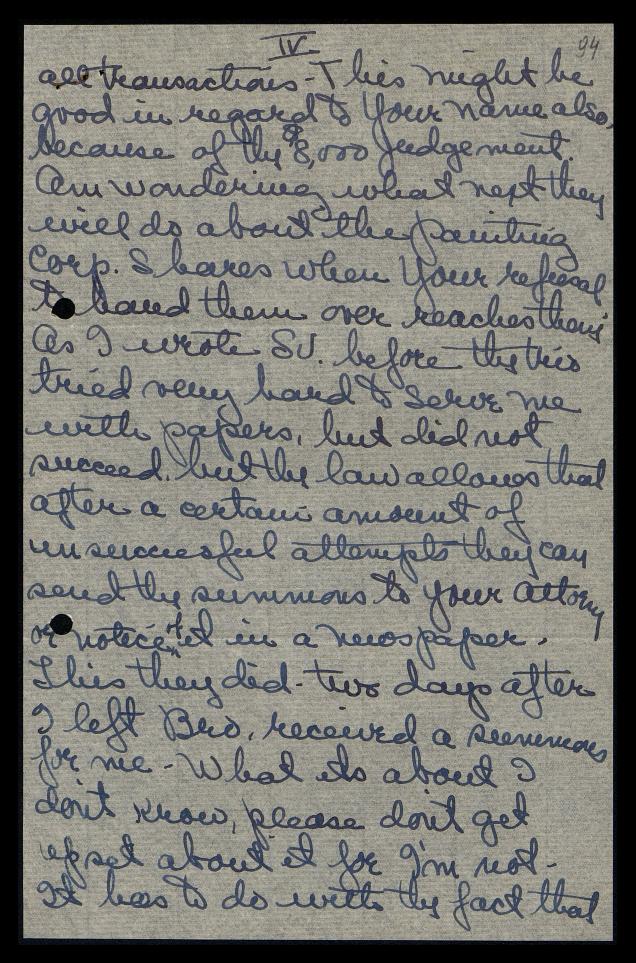 IV
94
all transactions - This might be
good in regard to your name also,
because of the $8,000 judgement.
Am wondering what next they
will do about the painting
Corp. Shares when your refusal
to hand them over reaches them
As I wrote SV. before they this
tried very hard to serve me
with papers, but did not
succeed. but the law allows that
after a certain amount of
unsuccessful attempts they can
send the summons to your attorny
or notice of it in a newspaper.
This they did - two days after
I left Bro. received a summons
for me - What its about I
don't know, please don't get
upset about it for I'm not -
It has to do with the fact that